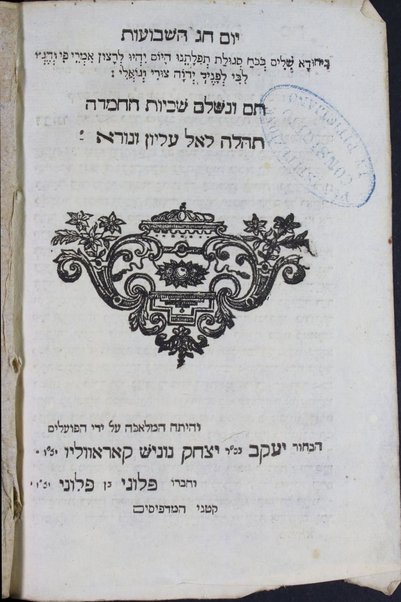 יום חג השבועות
שלים בכח סגולת תפלתנו היום יהיו לרצון אמרי פי והגיון
לבי לפניך יהוה צורי וגואלי :
תם ונשלם שכיות החמדה
תהלה לאל עליון ונורא :
והיתה המלאכה על ידי הפועלים
הבחור יעקב בכ"ר יצחק נוניש קאראווליו יצ"ו
וחברו פלוני בן פלוני יצ"ו
קטני המדפיסים